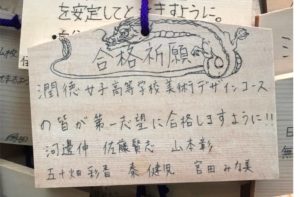 を安定してときますように。
合格祈願
潤徳女子高等学校美術デザインコース
の皆が第一志望に合格しますように!!
河邊伸 佐藤賢志 山本彰
五十畑彩音 泰健児 宮田みな美